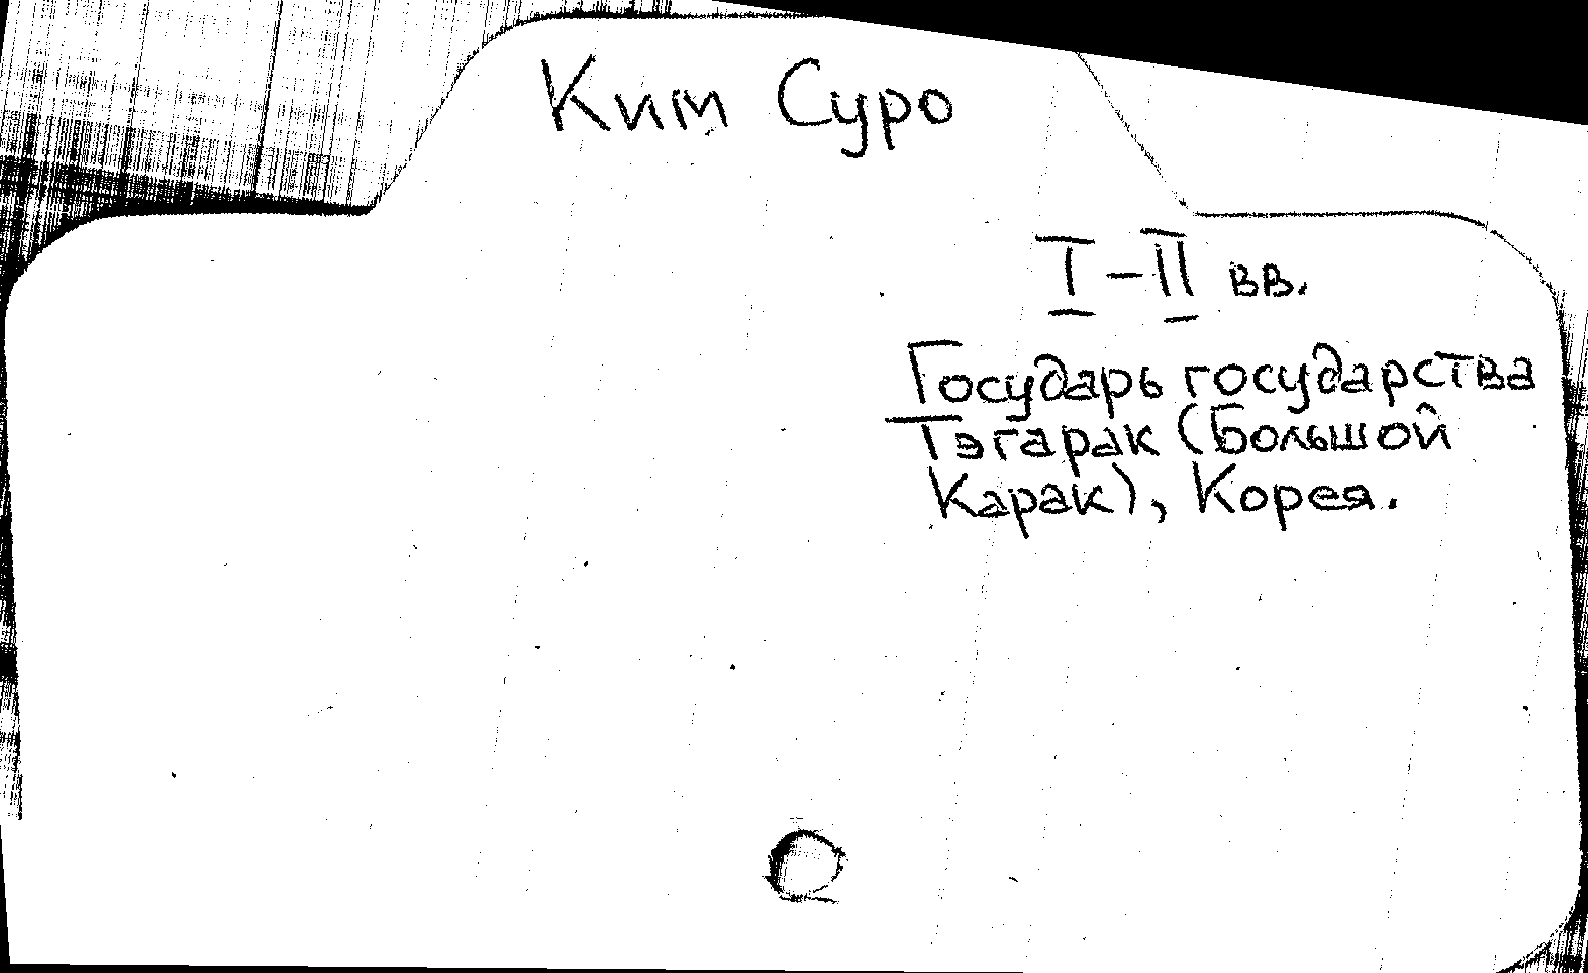 Ким Суро
I-II вв.
Государь государства
Тэгарак (Большой
Карак), Корея.